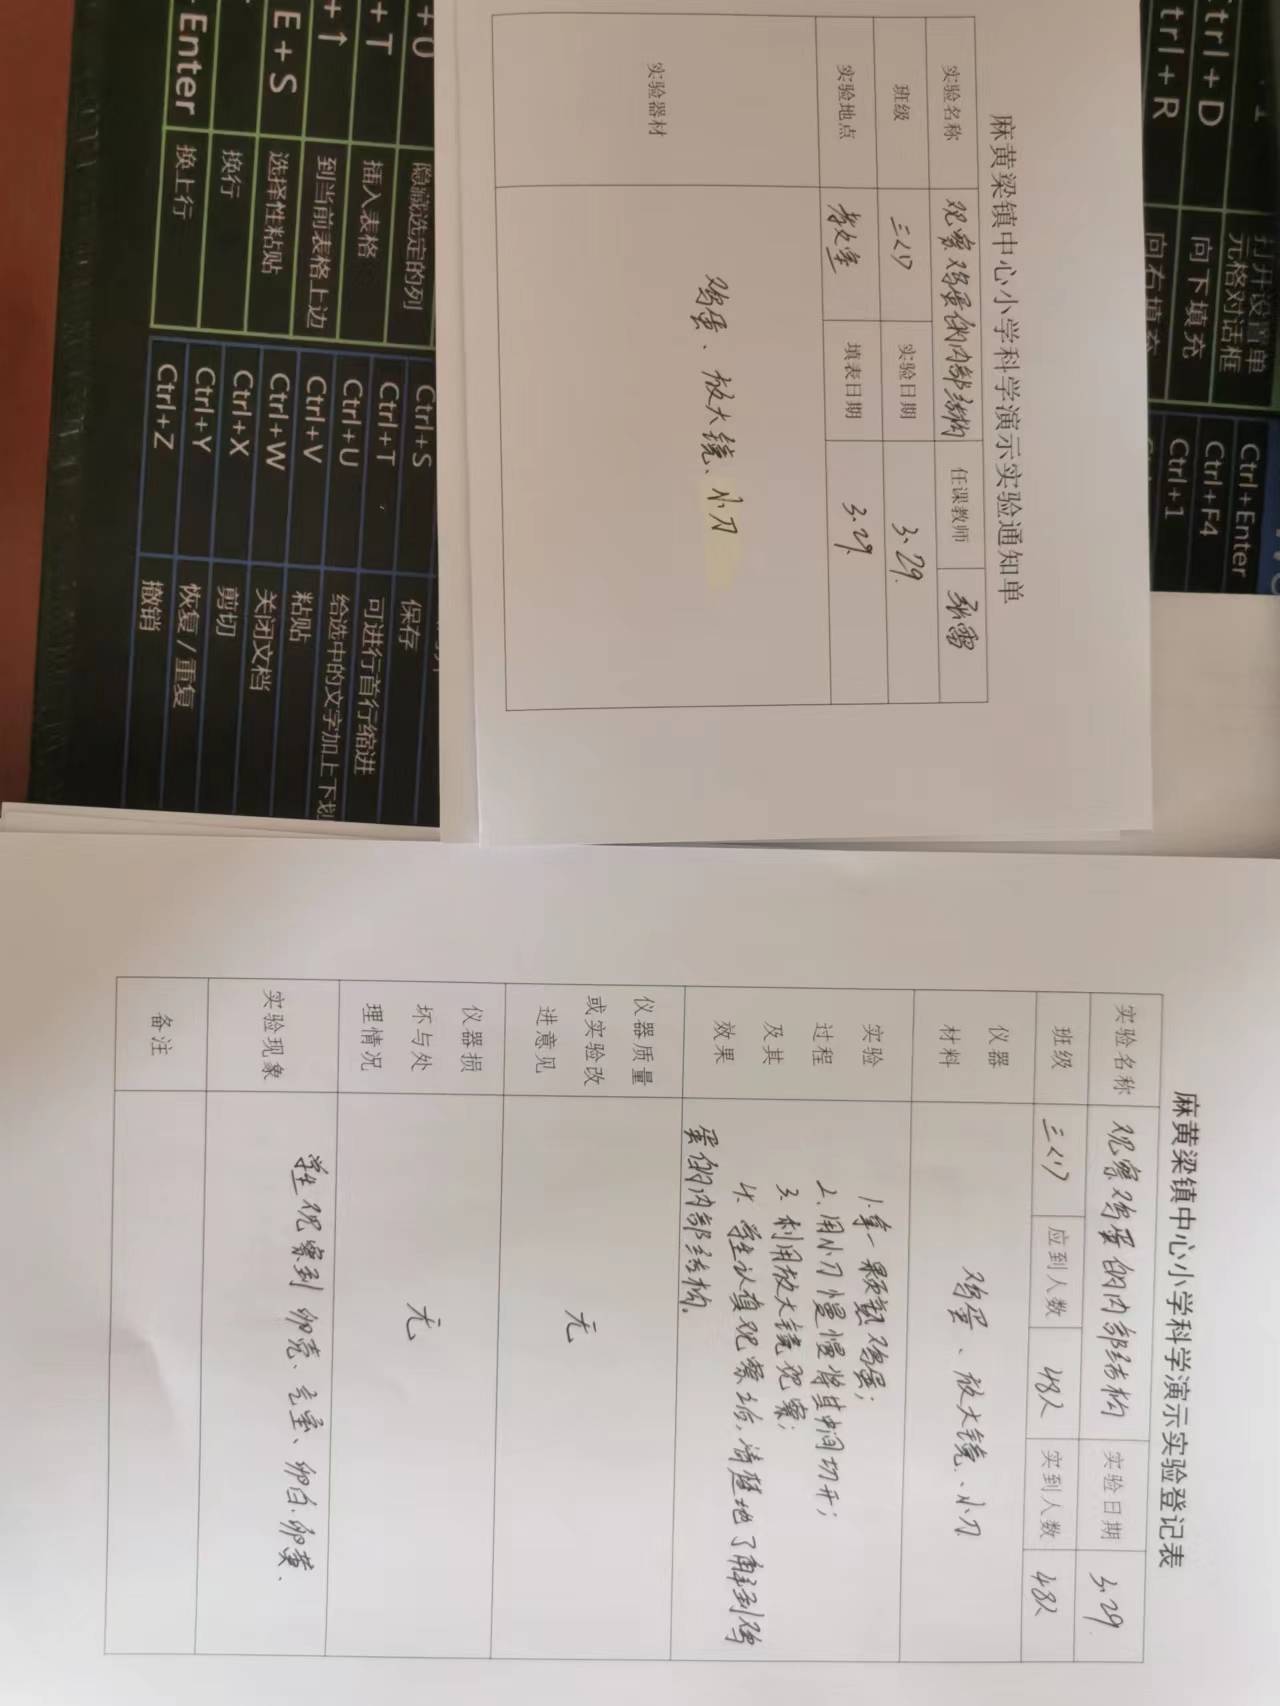 麻黄梁镇中心小学科学演示实验通知单
实验名称 观察鸡蛋的内部结构 任课教师 张雷
班级 三(1) 实验日期 3.29.
实验地点 教室 填表日期 3.29.
实验器材 鸡蛋、放大镜、小刀
麻黄梁镇中心小学科学演示实验登记表
实验名称 观察鸡蛋的内部结构 实验日期 3.29
班级 三(1) 应到人数 48人 实到人数 48人
仪器
材料
鸡蛋、放大镜、小刀
实验
过程
及其
效果
1.拿一颗熟鸡蛋;
2.用小刀慢慢将其中间切开;
3.利用放大镜观察;
4.学生认真观察之后,清楚地了解到鸡
蛋的内部结构。
仪器质量
或实验改
进意见
无
仪器损
坏与处
理情况
无
实验现象 学生观察到卵壳、气室、卵白、卵黄.
备注
Ctrl+D 向下填充
Ctrl+R 向右填充
打开设置单
元格对话框
Ctrl+Enter
Ctrl+F4
Ctrl+1
隐藏选定的列
+T 插入表格
+↑ 到当前表格上边
E+S 选择性粘贴
换行
Enter 换上行
Ctrl+S 保存
Ctrl+T 可进行首行缩进
Ctrl+U 给选中的文字加上下划
Ctrl+V 粘贴
Ctrl+W 关闭文档
Ctrl+X 剪切
Ctrl+Y 恢复/重复
Ctrl+Z 撤销